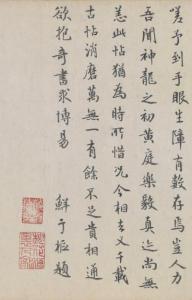 嗟予到手眼生障有數存焉豈人力
吾聞神龍之初黃庭樂毅真迹尚無
恙此帖猶為時所惜況今相去又千載
古帖消磨萬無一有餘不足貴相通
欲抱奇書求博易 鮮于樞題